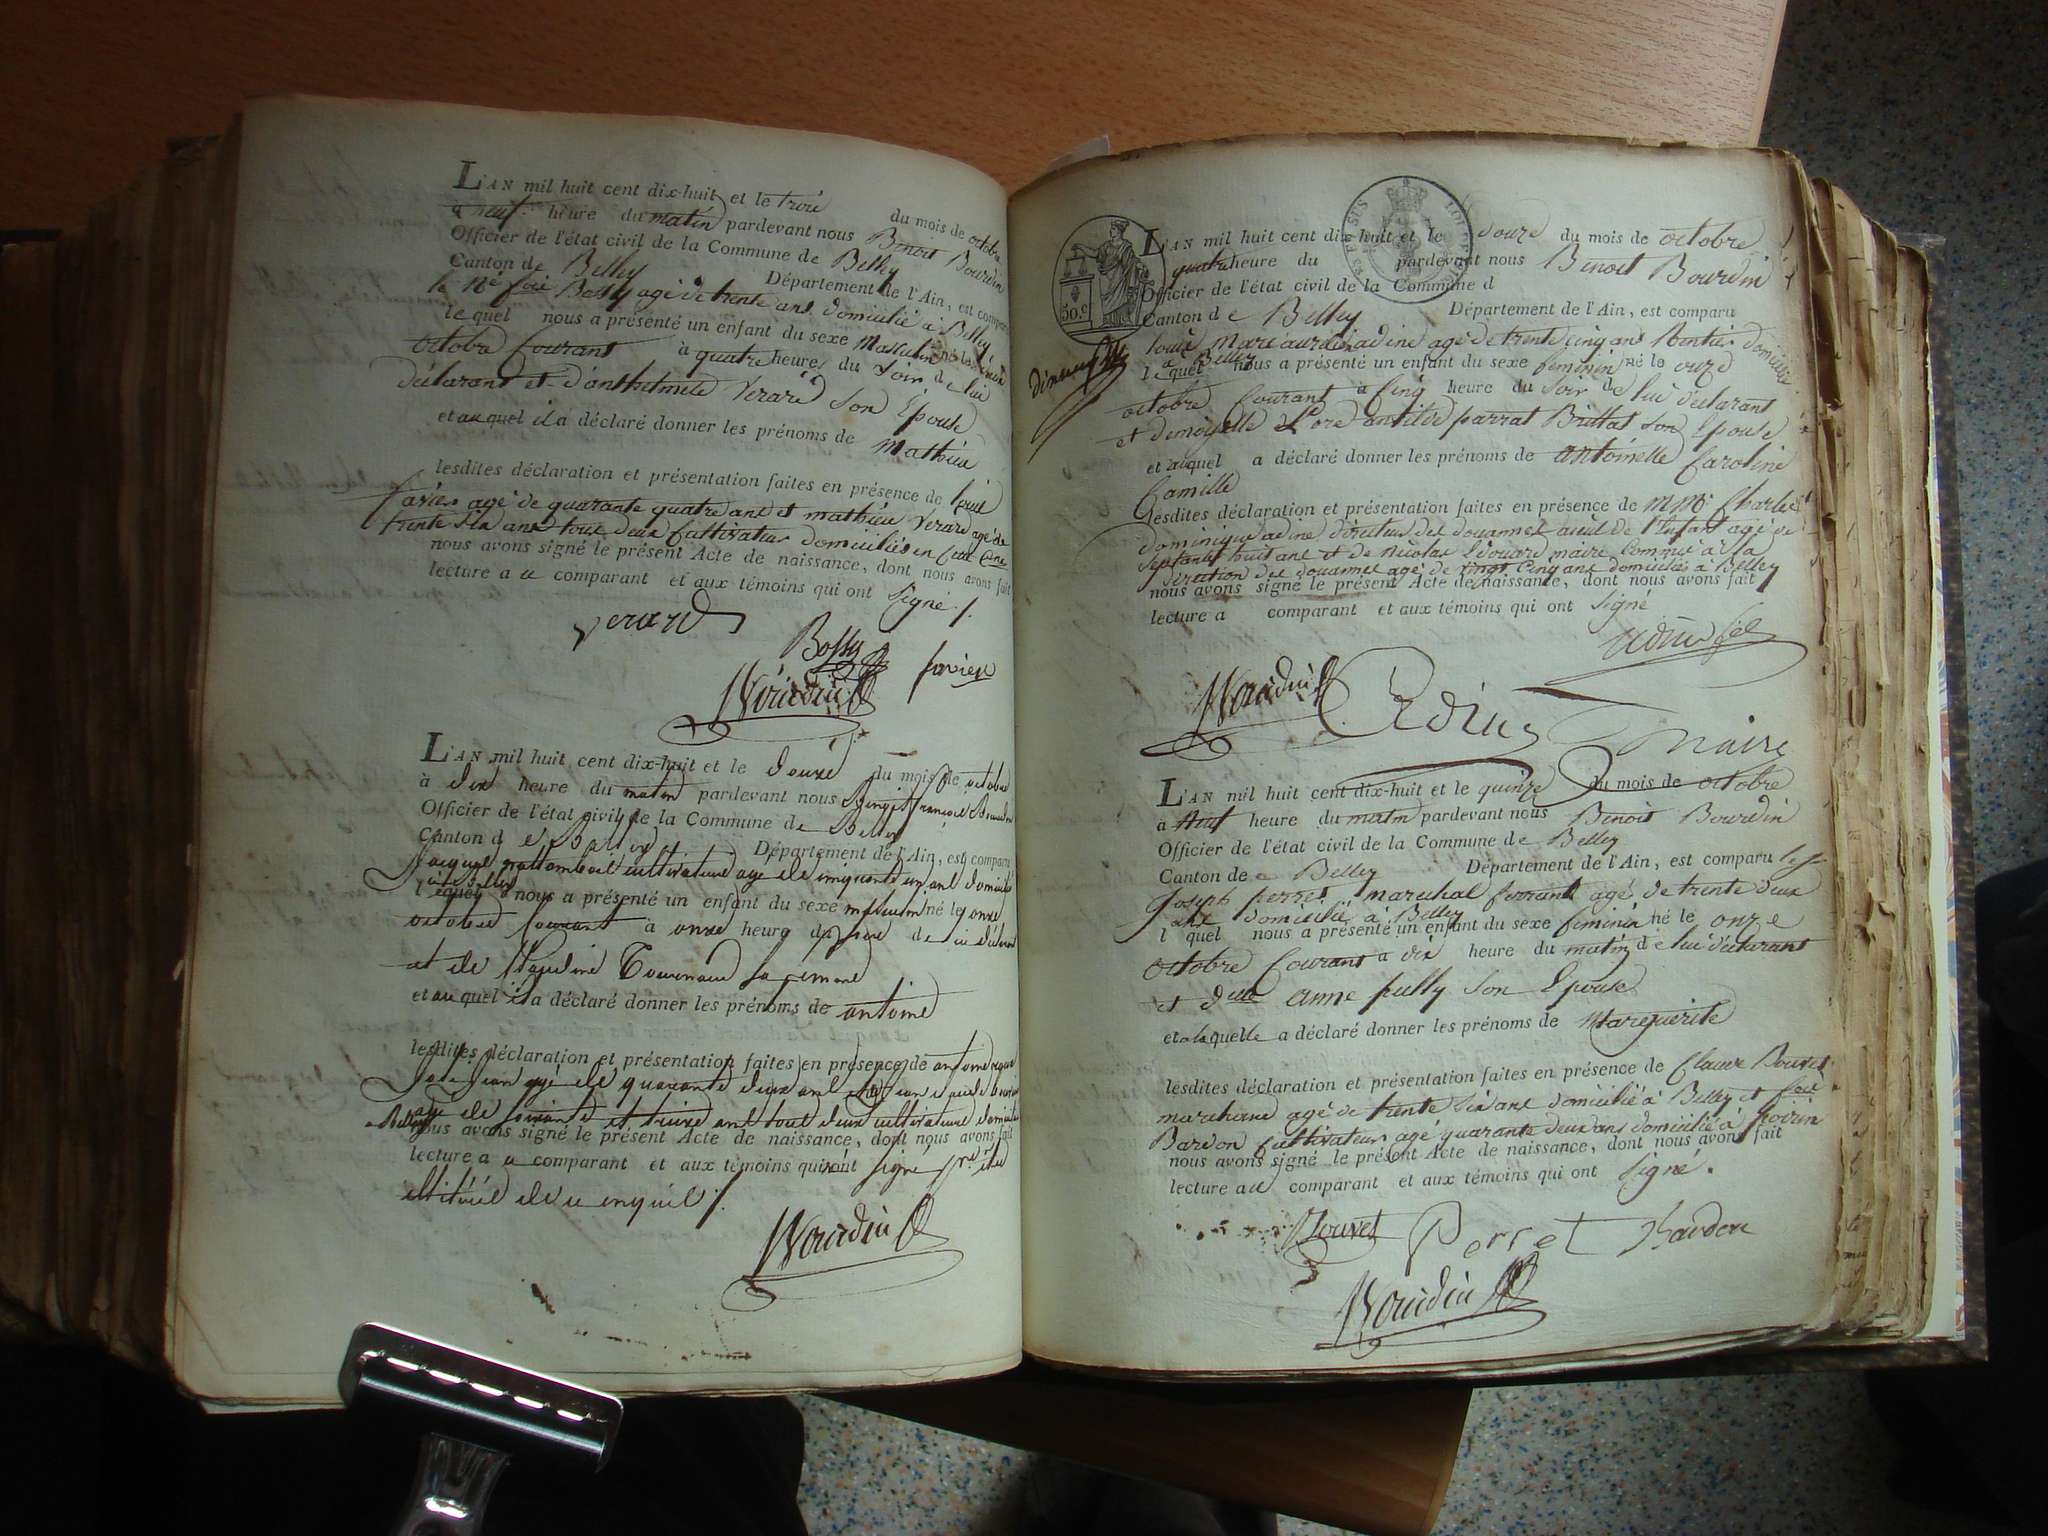 L'AN mil huit cent dix-huit et le trois du mois de octobre
à neuf heure du matin pardevant nous Benoit Bourdin
Officier de l'état civil de la Commune de Belley
Canton de Belley Département de l'Ain, est comparu
Bossy agé de trente ans domicilié a Belley
le quel nous a présenté un enfant du sexe Masculin né le
octobre Courant à quatre heures du soir de lui
déclarant et d'anthelmette Verard son Epouse
et auquel il a déclaré donner les prénoms de
Mathieu
lesdites déclaration et présentation faites en présence de louis
agé de quarante quatre ans et mathieu Verard agé de
trente six ans tous deux Cultivateurs domiciliés en
nous avons signé le présent Acte de naissance, dont nous avons fait
lecture a ce comparant et aux témoins qui ont signé ./.
verard
Bossy
Bourdin
L'AN mil huit cent dix-huit et le douze du mois de octobre
à dix heure du matin pardevant nous Bourdin
Officier de l'état civil de la Commune de Belley
Canton d e Belley Département de l'Ain, est comparu
Jacque cultivateur agé de cinquante un ans domicilié
à Belley
lequel nous a présenté un enfant du sexe masculin né le onze
octobre Courant à onze heure du de lui déclarant
et de sa femme
et auquel il a déclaré donner les prénoms de antoine
lesdites déclaration et présentation faites en présence de antoine
agé de quarante deux ans
agé de soixante et treize ans tout deux cultivateurs domiciliés
a Belley nous avons signé le présent Acte de naissance, dont nous avons fait
lecture a ce comparant et aux témoins qui ont signé
de ce enquis ./.
Bourdin
50.c
L'AN mil huit cent dix-huit et le douze du mois de octobre
à quatre heure du pardevant nous Benoit Bourdin
Officier de l'état civil de la Commune d
Canton d e Belley Département de l'Ain, est comparu
louis Marc aurele adine agé de trente cinq ans Rentier domicilié
a Belley
l e quel nous a présenté un enfant du sexe feminin né le onze
octobre Courant à Cinq heure du soir de lui declarant
et demoiselle parrat Brillat son Epouse
et auquel a déclaré donner les prénoms de antoinette Caroline
Camille
lesdites déclaration et présentation faites en présence de M.M. Charles
dominique adine directeur des douannes aieul de l'Enfant agé de
septante huit ans et de Nicolas Edouard maire Commis à la
direction des douannes agé de vingt Cinq ans domiciliés à Belley
nous avons signé le présent Acte de naissance, dont nous avons fait
lecture a comparant et aux témoins qui ont signé
adine fils
Bourdin
Adine
Maire
L'AN mil huit cent dix-huit et le quinze du mois de octobre
à Neuf heure du matin pardevant nous Benoit Bourdin
Officier de l'état civil de la Commune de Belley
Canton de Belley Département de l'Ain, est comparu le Sr
Joseph perret marechal ferrant agé de trente deux
ans domicilié à Belley
l quel nous a présenté un enfant du sexe feminin né le onze
octobre Courant a dix heure du matin de lui déclarant
et dlle anne pully son Epouse
et a laquelle a déclaré donner les prénoms de Marguerite
lesdites déclaration et présentation faites en présence de Claude Bouvet
marchand agé de trente six ans domicilié à Belley et
Bardon Cultivateur agé quarante deux ans domicilié à
nous avons signé le présent Acte de naissance, dont nous avons fait
lecture au comparant et aux témoins qui ont signé.
Bouvet Perret
Bourdin